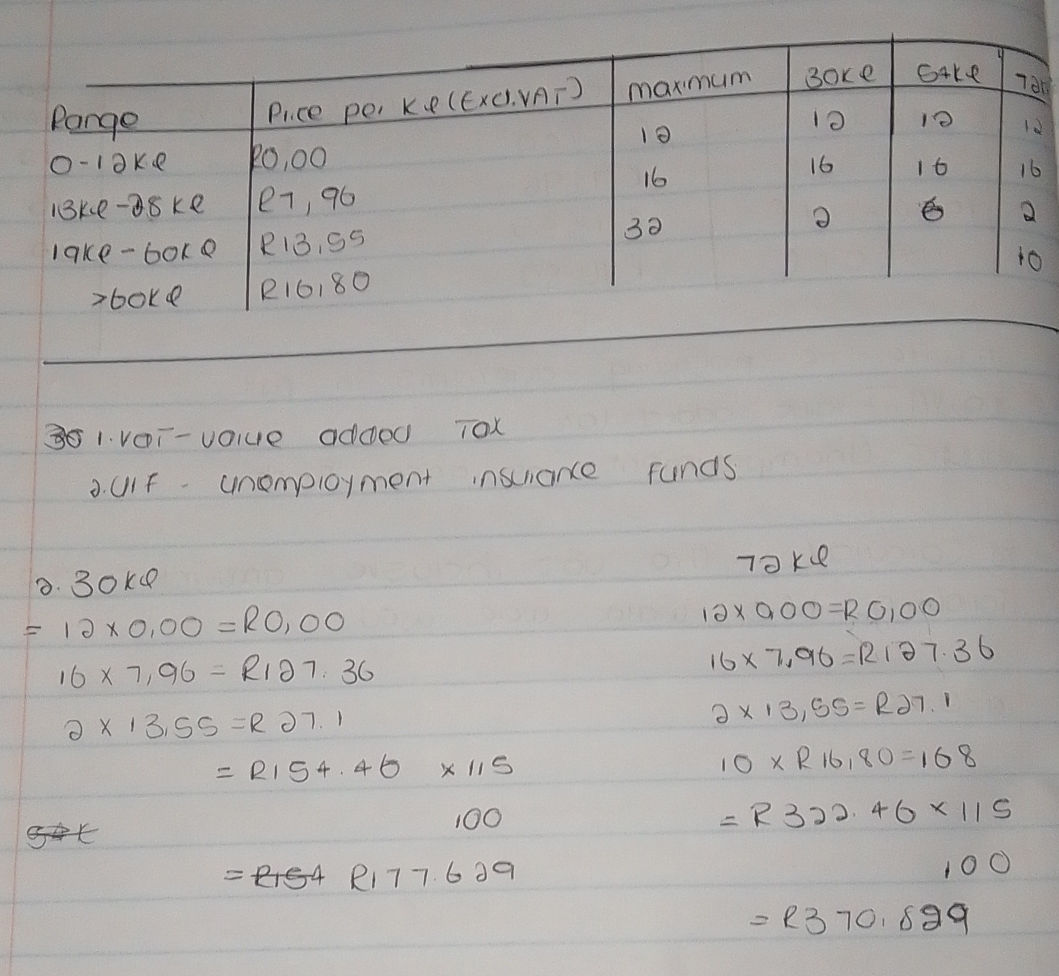 Range | Price per Kl (Excl.VAT) | maximum | 30Kl | 54Kl
0-12Kl | R0,00 | 12 | 12 | 12 | 12
13Kl-28Kl | R7,96 | 16 | 16 | 16 | 16
19Kl-60Kl | R13,55 | 32 | 2 | 2
>60Kl | R16,80 | 10
1.VAT-value added Tax
2.UIF - unemployment insurance Funds
2. 30Kl
= 12 x 0,00 = R0,00
16 x 7,96 = R127.36
2 x 13,55 = R27.1
= R154.46 x 115
100
= R177.629
72Kl
12 x 0,00 = R0,00
16 x 7,96 = R127.36
2 x 13,55 = R27.1
10 x R16,80 = 168
= R322.46 x 115
100
= R370.829